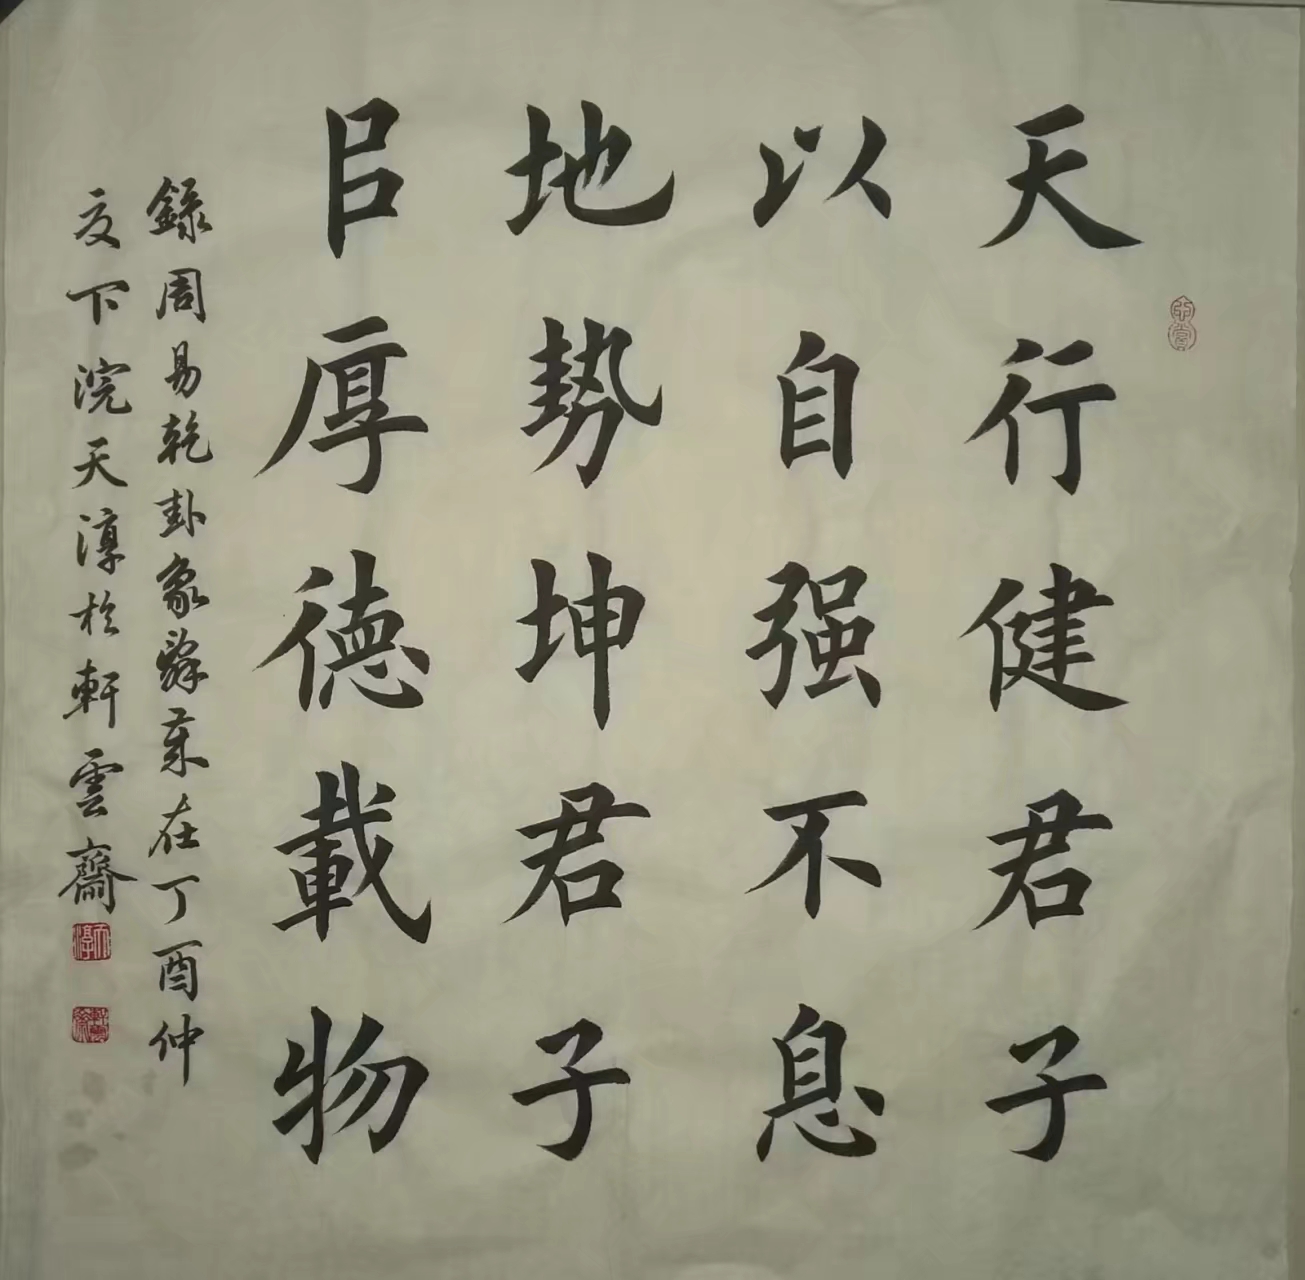 天行健君子
以自强不息
地势坤君子
㠯厚德載物
錄周易乾卦象辞歲在丁酉仲
夏下浣天淳於軒雲齋
天淳